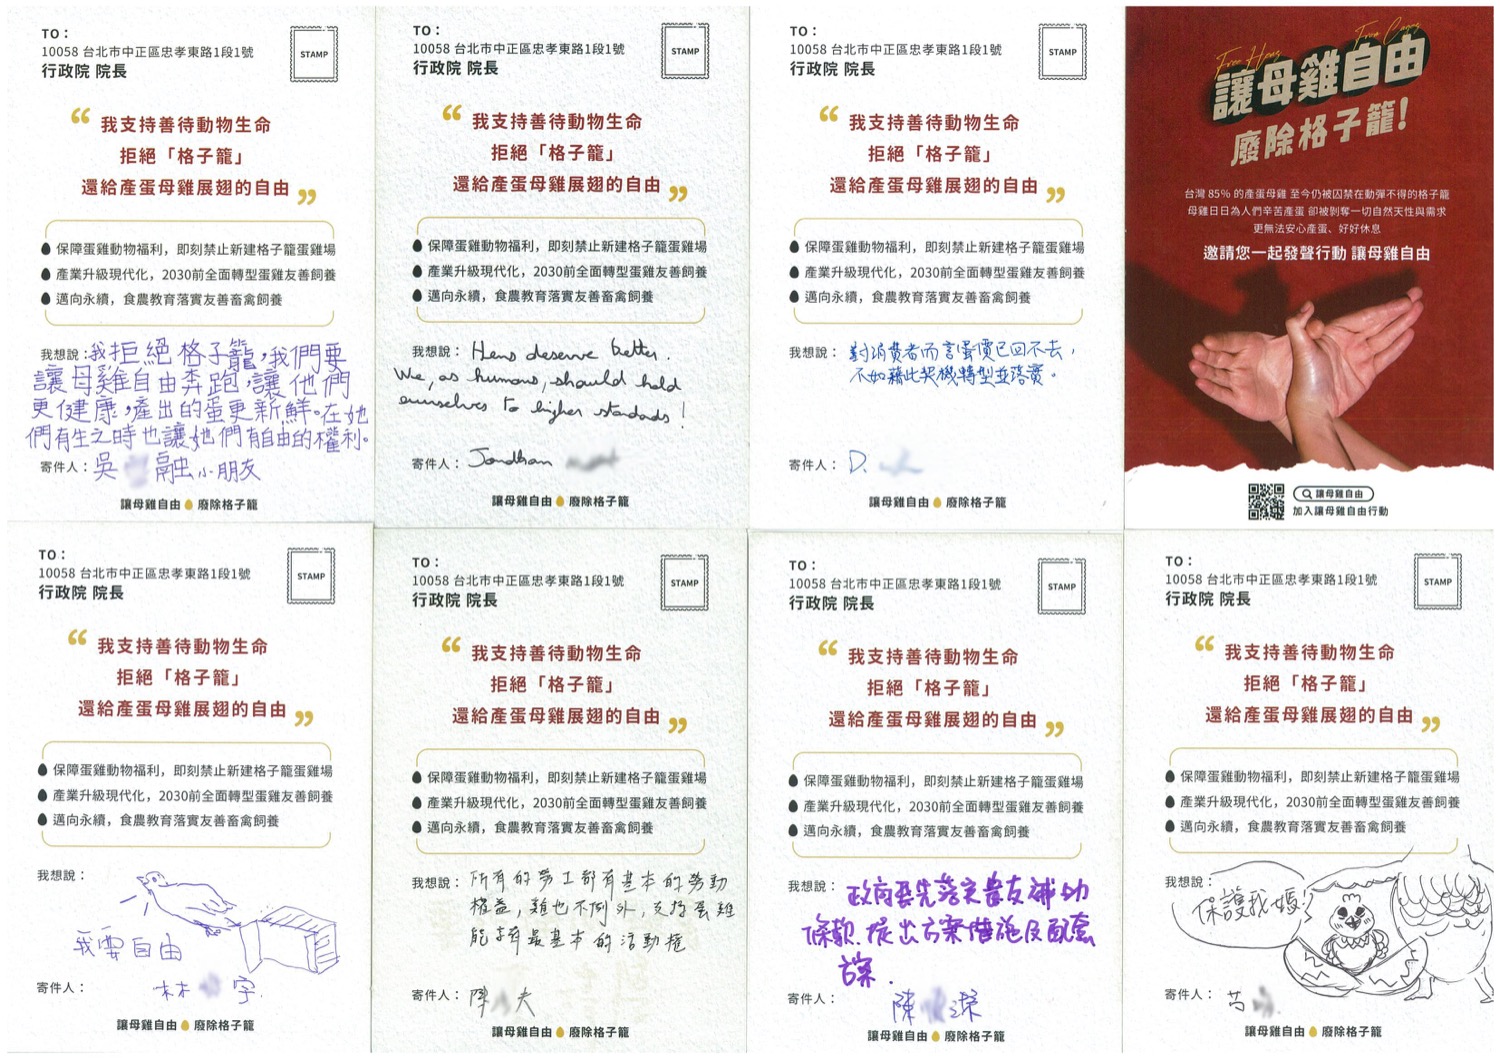 TO：
10058 台北市中正區忠孝東路1段1號
行政院 院長
STAMP
“ 我支持善待動物生命
拒絕「格子籠」
還給產蛋母雞展翅的自由 ”
保障蛋雞動物福利，即刻禁止新建格子籠蛋雞場
產業升級現代化，2030前全面轉型蛋雞友善飼養
邁向永續，食農教育落實友善畜禽飼養
我想說：我拒絕格子籠，我們要
讓母雞自由奔跑，讓他們
更健康，產出的蛋更新鮮。在她
們有生之時也讓她們有自由的權利。
寄件人：吳 融小朋友
讓母雞自由 廢除格子籠
TO：
10058 台北市中正區忠孝東路1段1號
行政院 院長
STAMP
“ 我支持善待動物生命
拒絕「格子籠」
還給產蛋母雞展翅的自由 ”
保障蛋雞動物福利，即刻禁止新建格子籠蛋雞場
產業升級現代化，2030前全面轉型蛋雞友善飼養
邁向永續，食農教育落實友善畜禽飼養
我想說： Hens deserve better.
We, as humans, should hold
ourselves to higher standads!
寄件人： Jonathan
讓母雞自由 廢除格子籠
TO：
10058 台北市中正區忠孝東路1段1號
行政院 院長
STAMP
“ 我支持善待動物生命
拒絕「格子籠」
還給產蛋母雞展翅的自由 ”
保障蛋雞動物福利，即刻禁止新建格子籠蛋雞場
產業升級現代化，2030前全面轉型蛋雞友善飼養
邁向永續，食農教育落實友善畜禽飼養
我想說： 對消費者而言蛋價已回不去，
不如藉此契機轉型並落實。
寄件人： D.
讓母雞自由 廢除格子籠
Free Hens Free Cages
讓母雞自由
廢除格子籠！
台灣 85% 的產蛋母雞 至今仍被囚禁在動彈不得的格子籠
母雞日日為人們辛苦產蛋 卻被剝奪一切自然天性與需求
更無法安心產蛋、好好休息
邀請您一起發聲行動 讓母雞自由
讓母雞自由
加入讓母雞自由行動
TO：
10058 台北市中正區忠孝東路1段1號
行政院 院長
STAMP
“ 我支持善待動物生命
拒絕「格子籠」
還給產蛋母雞展翅的自由 ”
保障蛋雞動物福利，即刻禁止新建格子籠蛋雞場
產業升級現代化，2030前全面轉型蛋雞友善飼養
邁向永續，食農教育落實友善畜禽飼養
我想說：
我要自由
寄件人： 林 宇.
讓母雞自由 廢除格子籠
TO：
10058 台北市中正區忠孝東路1段1號
行政院 院長
STAMP
“ 我支持善待動物生命
拒絕「格子籠」
還給產蛋母雞展翅的自由 ”
保障蛋雞動物福利，即刻禁止新建格子籠蛋雞場
產業升級現代化，2030前全面轉型蛋雞友善飼養
邁向永續，食農教育落實友善畜禽飼養
我想說： 所有的勞工都有基本的勞動
權益，雞也不例外，支持蛋雞
能擁有最基本的活動權
寄件人： 陳 夫
讓母雞自由 廢除格子籠
TO：
10058 台北市中正區忠孝東路1段1號
行政院 院長
STAMP
“ 我支持善待動物生命
拒絕「格子籠」
還給產蛋母雞展翅的自由 ”
保障蛋雞動物福利，即刻禁止新建格子籠蛋雞場
產業升級現代化，2030前全面轉型蛋雞友善飼養
邁向永續，食農教育落實友善畜禽飼養
我想說： 政府要先落實 友補助
條款.提出方案措施及配套
方案.
寄件人： 陳
讓母雞自由 廢除格子籠
TO：
10058 台北市中正區忠孝東路1段1號
行政院 院長
STAMP
“ 我支持善待動物生命
拒絕「格子籠」
還給產蛋母雞展翅的自由 ”
保障蛋雞動物福利，即刻禁止新建格子籠蛋雞場
產業升級現代化，2030前全面轉型蛋雞友善飼養
邁向永續，食農教育落實友善畜禽飼養
我想說：
保護我媽!
寄件人：
讓母雞自由 廢除格子籠